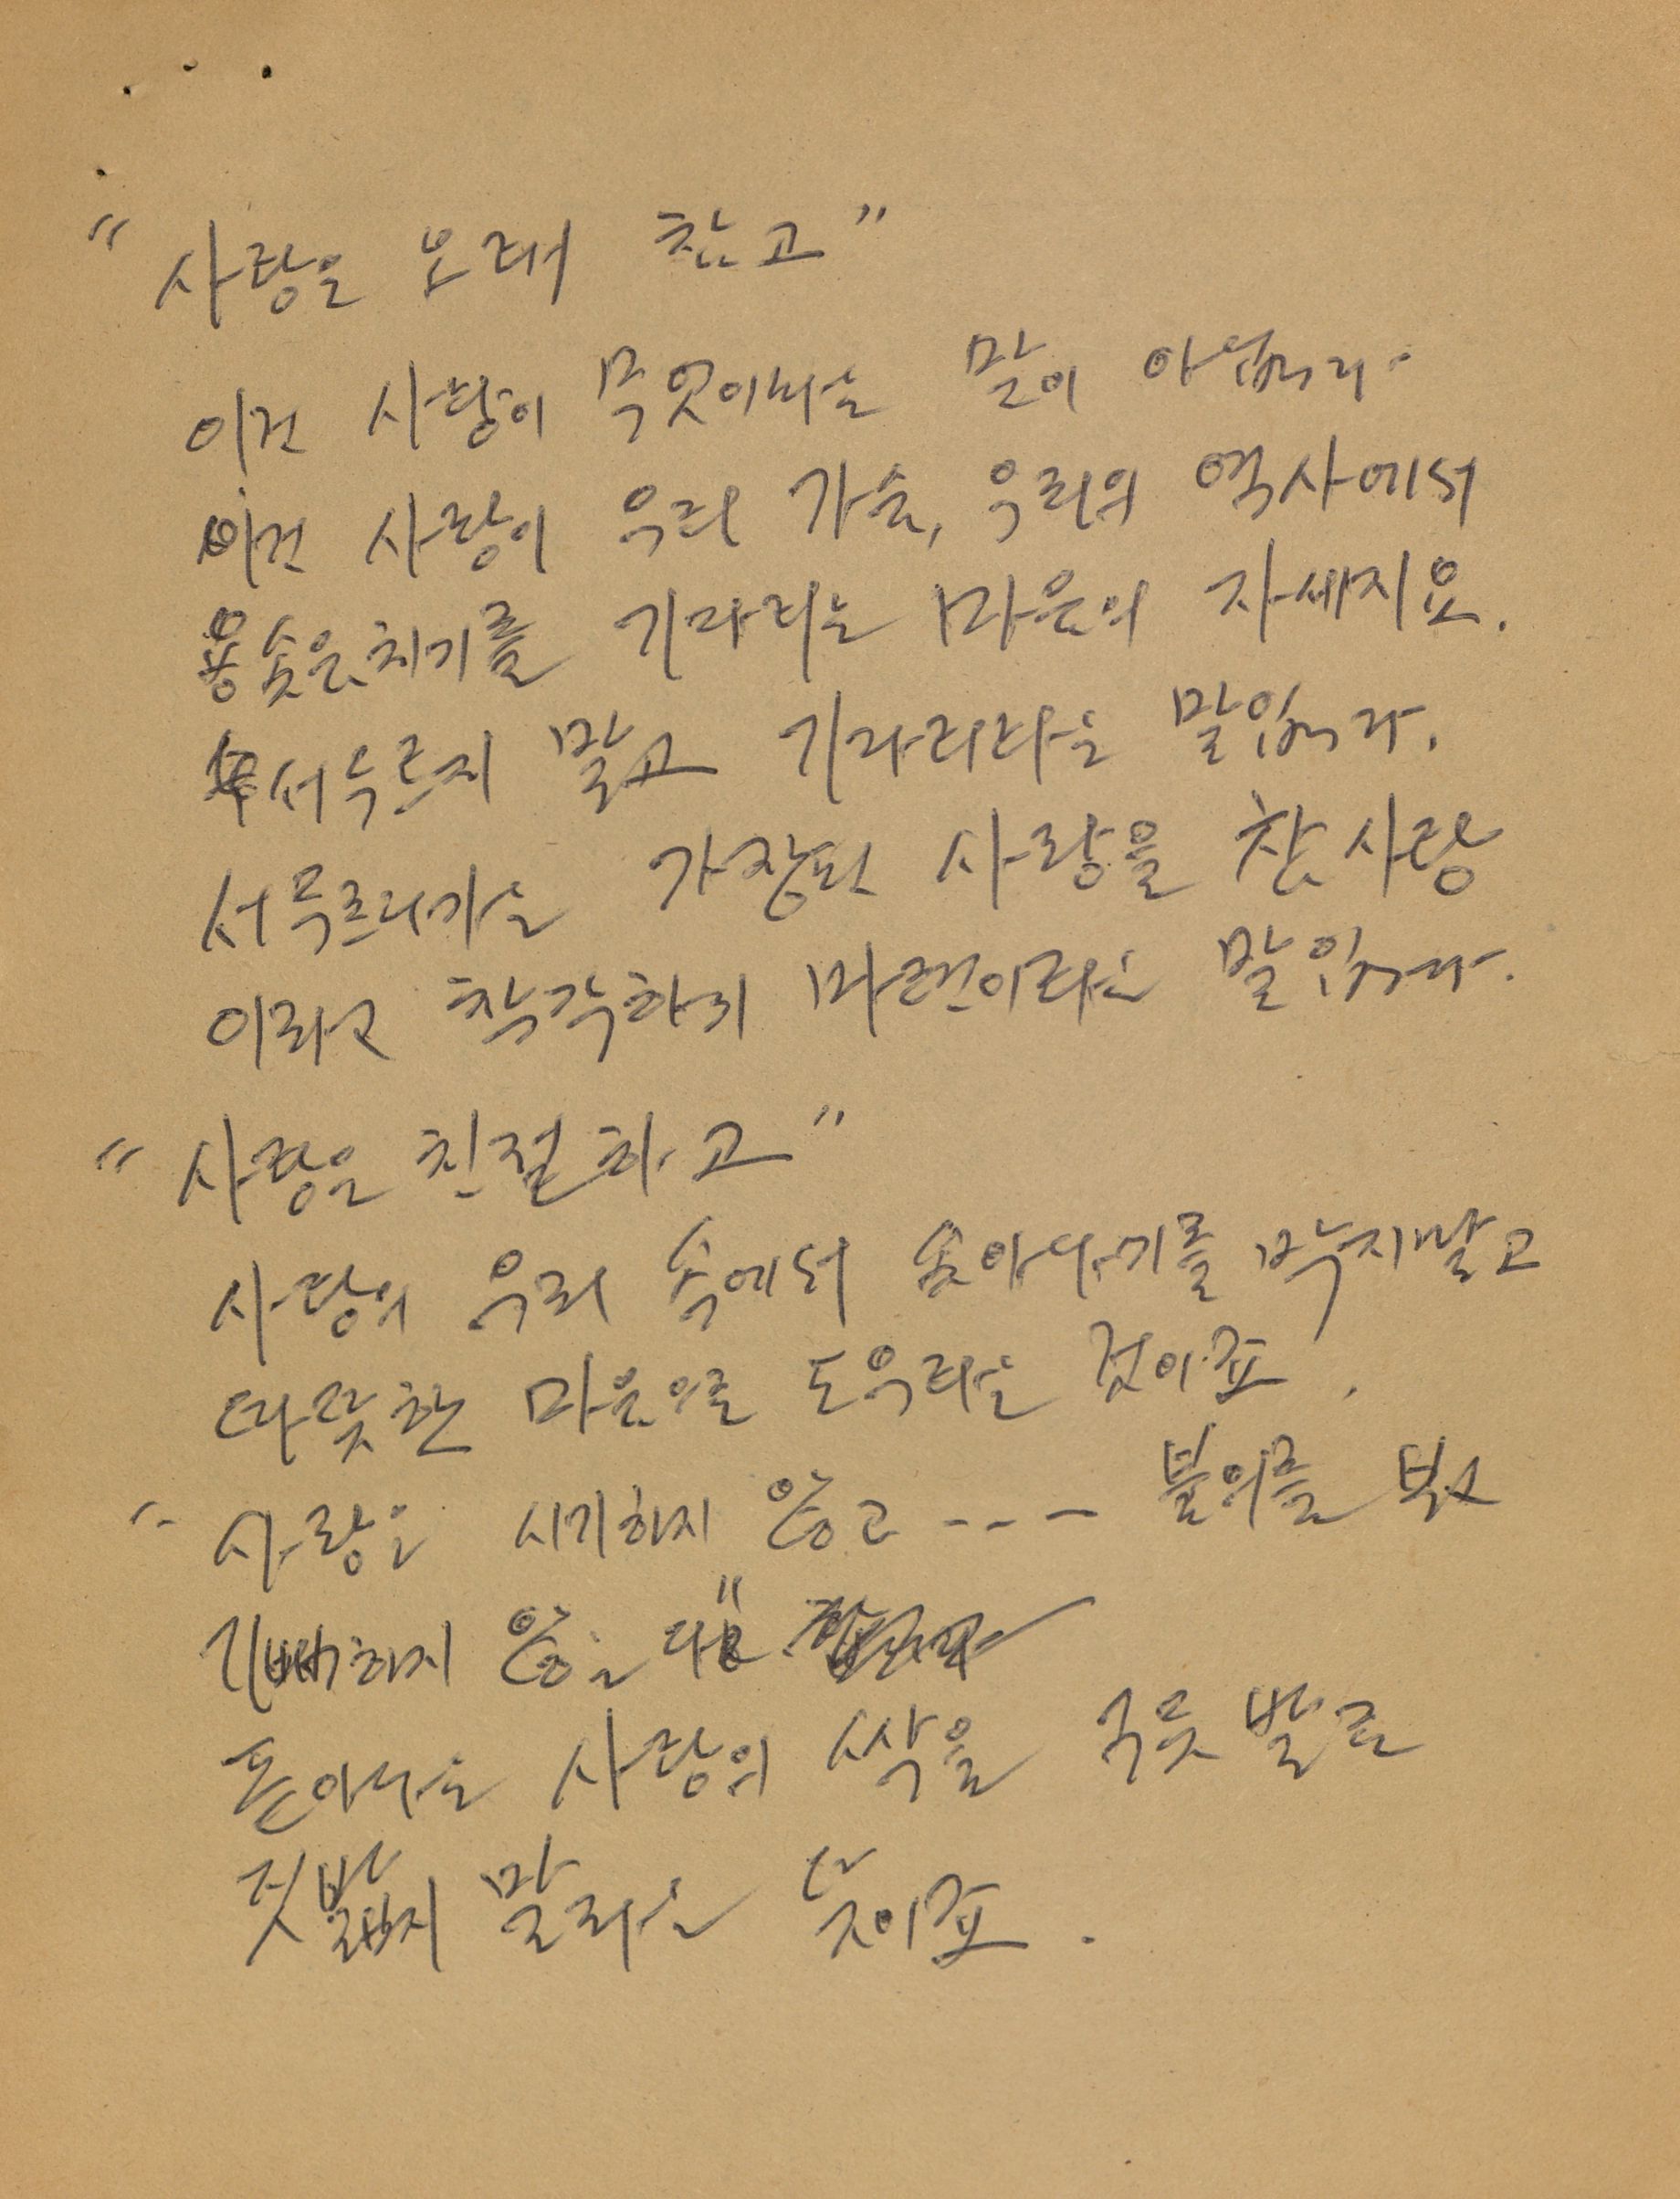 "사랑은 오래 참고"
이건 사랑이 무엇이냐는 말이 아닙니다.
이건 사랑이 우리 가슴, 우리의 역사에서
용솟음치기를 기다리는 마음의 자세지요.
서두르지 말고 기다리라는 말입니다.
서두르다가는 가장된 사랑을 참 사랑
이라고 착각하기 마련이라는 말입니다.
"사랑은 친절하고"
사랑이 우리 속에서 솟아나기를 막지말고
따뜻한 마음으로 도우라는 것이죠.
"사랑은 시기하지 않고---- 불의를 보고
기뻐하지 않는다"
돋아나는 사랑의 싹을 구둣발로
짓밟지 말라는 뜻이죠.